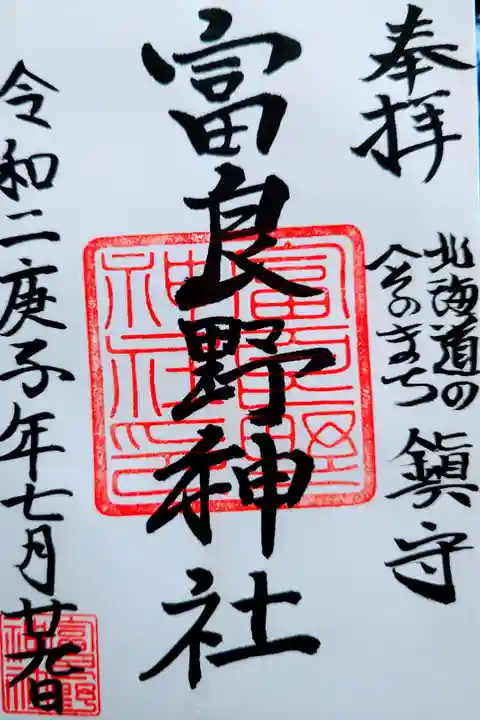 奉拝
北海道の
へそのまち
鎭守
富良野神社
富良野
神社印
令和二庚子年七月廿九日